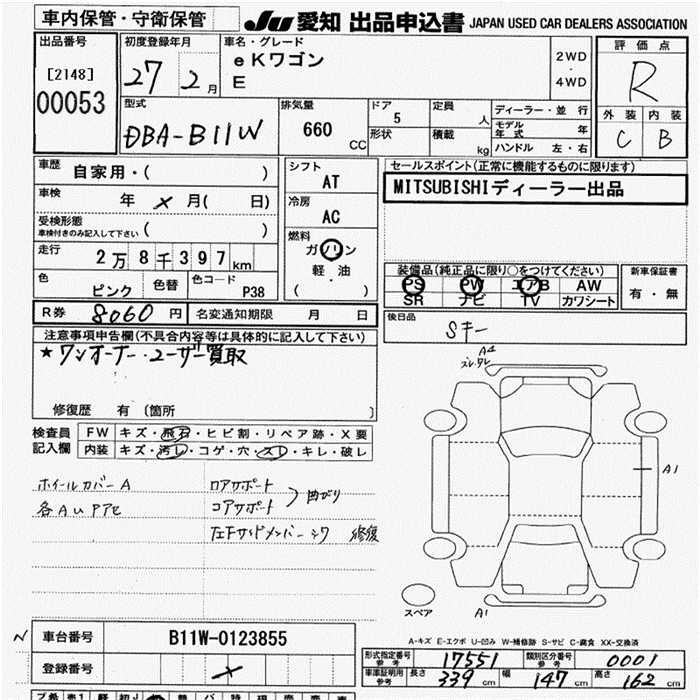 車内保管・守衛保管
JU 愛知 出品申込書 JAPAN USED CAR DEALERS ASSOCIATION
出品番号
[2148]
00053
初度登録年月
27 2月
車名・グレード
eKワゴン
E
2WD
・
4WD
評価点
R
外装 内装
C B
型式
DBA-B11W
排気量
660 CC
ドア
5
形状
定員
人
積載
kg
ディーラー・並行
モデル年式 年
ハンドル 左・右
車歴 自家用・( )
車検 年 × 月( 日)
受検形態
車検付きのみ記入して下さい ( )
走行 2万8千397km
色 ピンク 色替 色コード P38
シフト
AT
冷房
AC
燃料
ガソリン
軽・油
( )
セールスポイント(正常に機能するものに限ります)
MITSUBISHIディーラー出品
装備品(純正品に限り○をつけてください)
PS PW エアB AW
SR ナビ TV カワシート
新車保証書
有・無
後日品
Sキー
R券 8060円 名変通知期限 月 日
注意事項申告欄(不具合内容等は具体的に記入して下さい)
★ワンオーナー・ユーザー買取
修復歴 有 〔箇所 〕
検査員記入欄
FW キズ・飛石・ヒビ割・リペア跡・X要
内装 キズ・汚レ・コゲ・穴・スレ・キレ・破レ
ホイールカバーA
各AUPアセ
ロアサポート
コアサポート
曲がり
左Fサイドメンバーシワ 修復
A4
ズレ・タレ
A1
スペア
A1
A-キズ E-エクボ U-凹み W-補修跡 S-サビ C-腐食 XX-交換済
N
車台番号 B11W-0123855
登録番号 ×
形式指定番号 参考 17551 類別区分番号 参考 0001
車庫証明用 参考 長さ 339 幅 147 高さ 162 cm